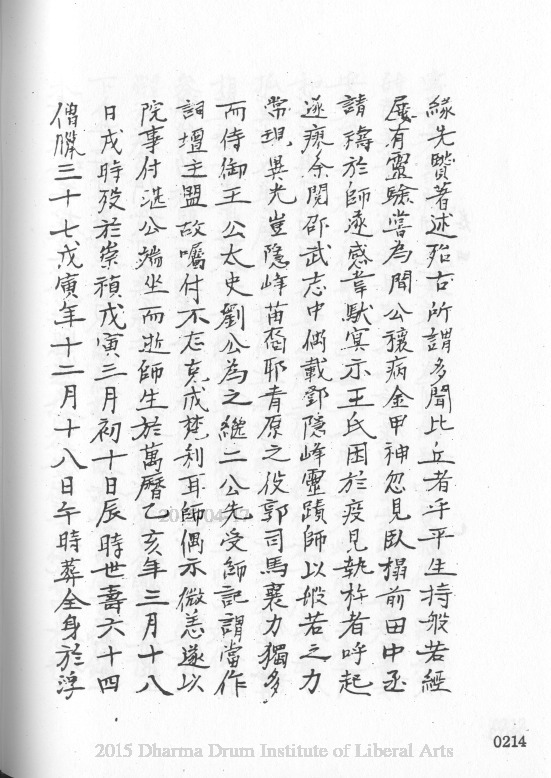 緣先贒著述殆古所謂多聞比丘者乎平生持般若經
屢有靈驗嘗為聞公禳病金甲神忽見臥榻前田中丞
請禱於師遂感韋馱冥示王氏困於疫見執杵者呼起
遂瘳余閱邵武志中偶載鄧隱峰靈蹟師以般若之力
常現異光豈隱峰苗裔耶青原之役郭司馬襄力獨多
而侍御王公太史劉公為之繼二公先受師記謂當作
詞壇主盟故囑付不忘克成梵利耳師偶示微恙遂以
院事付湛公端坐而逝師生於萬曆乙亥年三月十八
日戌時歿於崇禎戊寅三月初十日辰時世壽六十四
僧臘三十七戊寅年十二月十八日午時葬全身於浮
0214
2015 Dharma Drum Institute of Liberal Arts